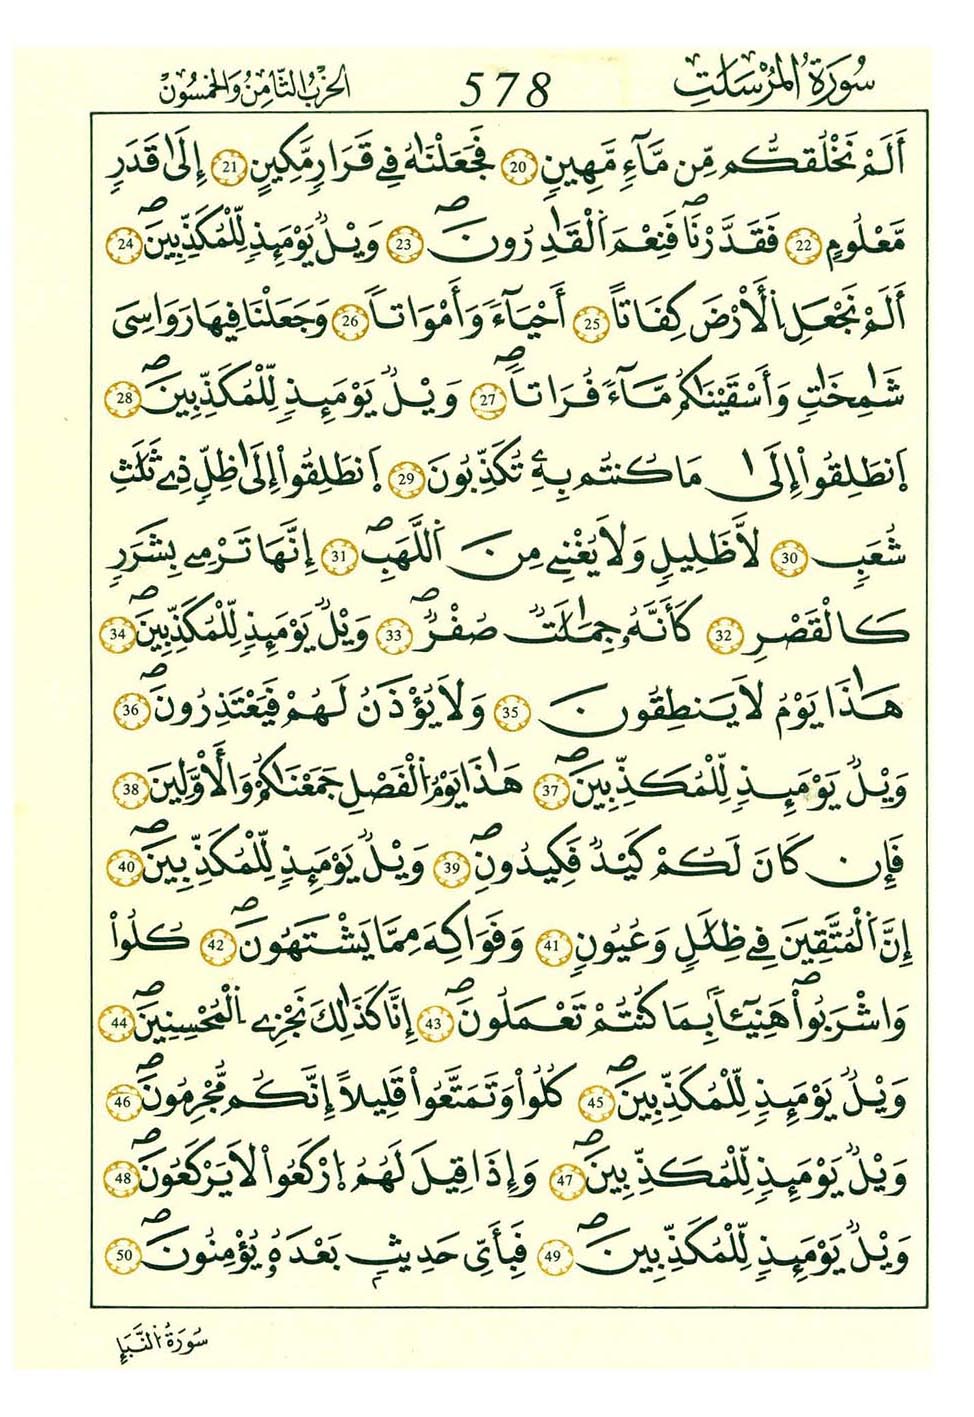 سُورَةُ الْمُرْسَلَٰتِ 578 الحِزْبُ الثَّامِنُ وَالخَمْسُونَ
أَلَمْ نَخْلُقكُّم مِّن مَّآءٖ مَّهِينٖ 20 فَجَعَلْنَٰهُ فِے قَرَارٖ مَّكِينٍ 21 إِلَىٰ قَدَرٖ
مَّعْلُومٖ 22 فَقَدَّرْنَاۖ فَنِعْمَ اَ۬لْقَٰدِرُونَۖ 23 وَيْلٞ يَوْمَئِذٖ لِّلْمُكَذِّبِينَۖ 24
أَلَمْ نَجْعَلِ اِ۬لَارْضَ كِفَاتاً 25 اَحْيَآءٗ وَأَمْوَاتاٗ 26 وَجَعَلْنَا فِيهَا رَوَٰسِىَ
شَٰمِخَٰتٖ وَأَسْقَيْنَٰكُم مَّآءٗ فُرَاتاٗۖ 27 وَيْلٞ يَوْمَئِذٖ لِّلْمُكَذِّبِينَۖ 28
اَ۪نطَلِقُوٓاْ إِلَىٰ مَا كُنتُم بِهِۦ تُكَذِّبُونَ 29 اَ۪نطَلِقُوٓاْ إِلَىٰ ظِلّٖ ذِے ثَلَٰثِ
شُعَبٖ 30 لَّا ظَلِيلٖ وَلَا يُغْنِے مِنَ اَ۬للَّهَبِۖ 31 إِنَّهَا تَرْمِے بِشَرَرٖ
كَالْقَصْرِ 32 كَأَنَّهُۥ جِمَٰلَٰتٞ صُفْرٞۖ 33 وَيْلٞ يَوْمَئِذٖ لِّلْمُكَذِّبِينَۖ 34
هَٰذَا يَوْمُ لَا يَنطِقُونَ 35 وَلَا يُؤْذَنُ لَهُمْ فَيَعْتَذِرُونَۖ 36
وَيْلٞ يَوْمَئِذٖ لِّلْمُكَذِّبِينَۖ 37 هَٰذَا يَوْمُ اُ۬لْفَصْلِ جَمَعْنَٰكُمْ وَالَاوَّلِينَ 38
فَإِن كَانَ لَكُمْ كَيْدٞ فَكِيدُونِۖ 39 وَيْلٞ يَوْمَئِذٖ لِّلْمُكَذِّبِينَۖ 40
إِنَّ اَ۬لْمُتَّقِينَ فِے ظِلَٰلٖ وَعُيُونٖ 41 وَفَوَٰكِهَ مِمَّا يَشْتَهُونَۖ 42 كُلُواْ
وَاشْرَبُواْۖ هَنِيٓـٔاَۢ بِمَا كُنتُمْ تَعْمَلُونَۖ 43 إِنَّا كَذَٰلِكَ نَجْزِے اِ۬لْمُحْسِنِينَۖ 44
وَيْلٞ يَوْمَئِذٖ لِّلْمُكَذِّبِينَۖ 45 كُلُواْ وَتَمَتَّعُواْ قَلِيلاً إِنَّكُم مُّجْرِمُونَۖ 46
وَيْلٞ يَوْمَئِذٖ لِّلْمُكَذِّبِينَۖ 47 وَإِذَا قِيلَ لَهُمُ اُ۪رْكَعُواْ لَا يَرْكَعُونَۖ 48
وَيْلٞ يَوْمَئِذٖ لِّلْمُكَذِّبِينَۖ 49 فَبِأَىِّ حَدِيثِۢ بَعْدَهُۥ يُؤْمِنُونَۖ 50
سُورَةُ النَّبَإِ